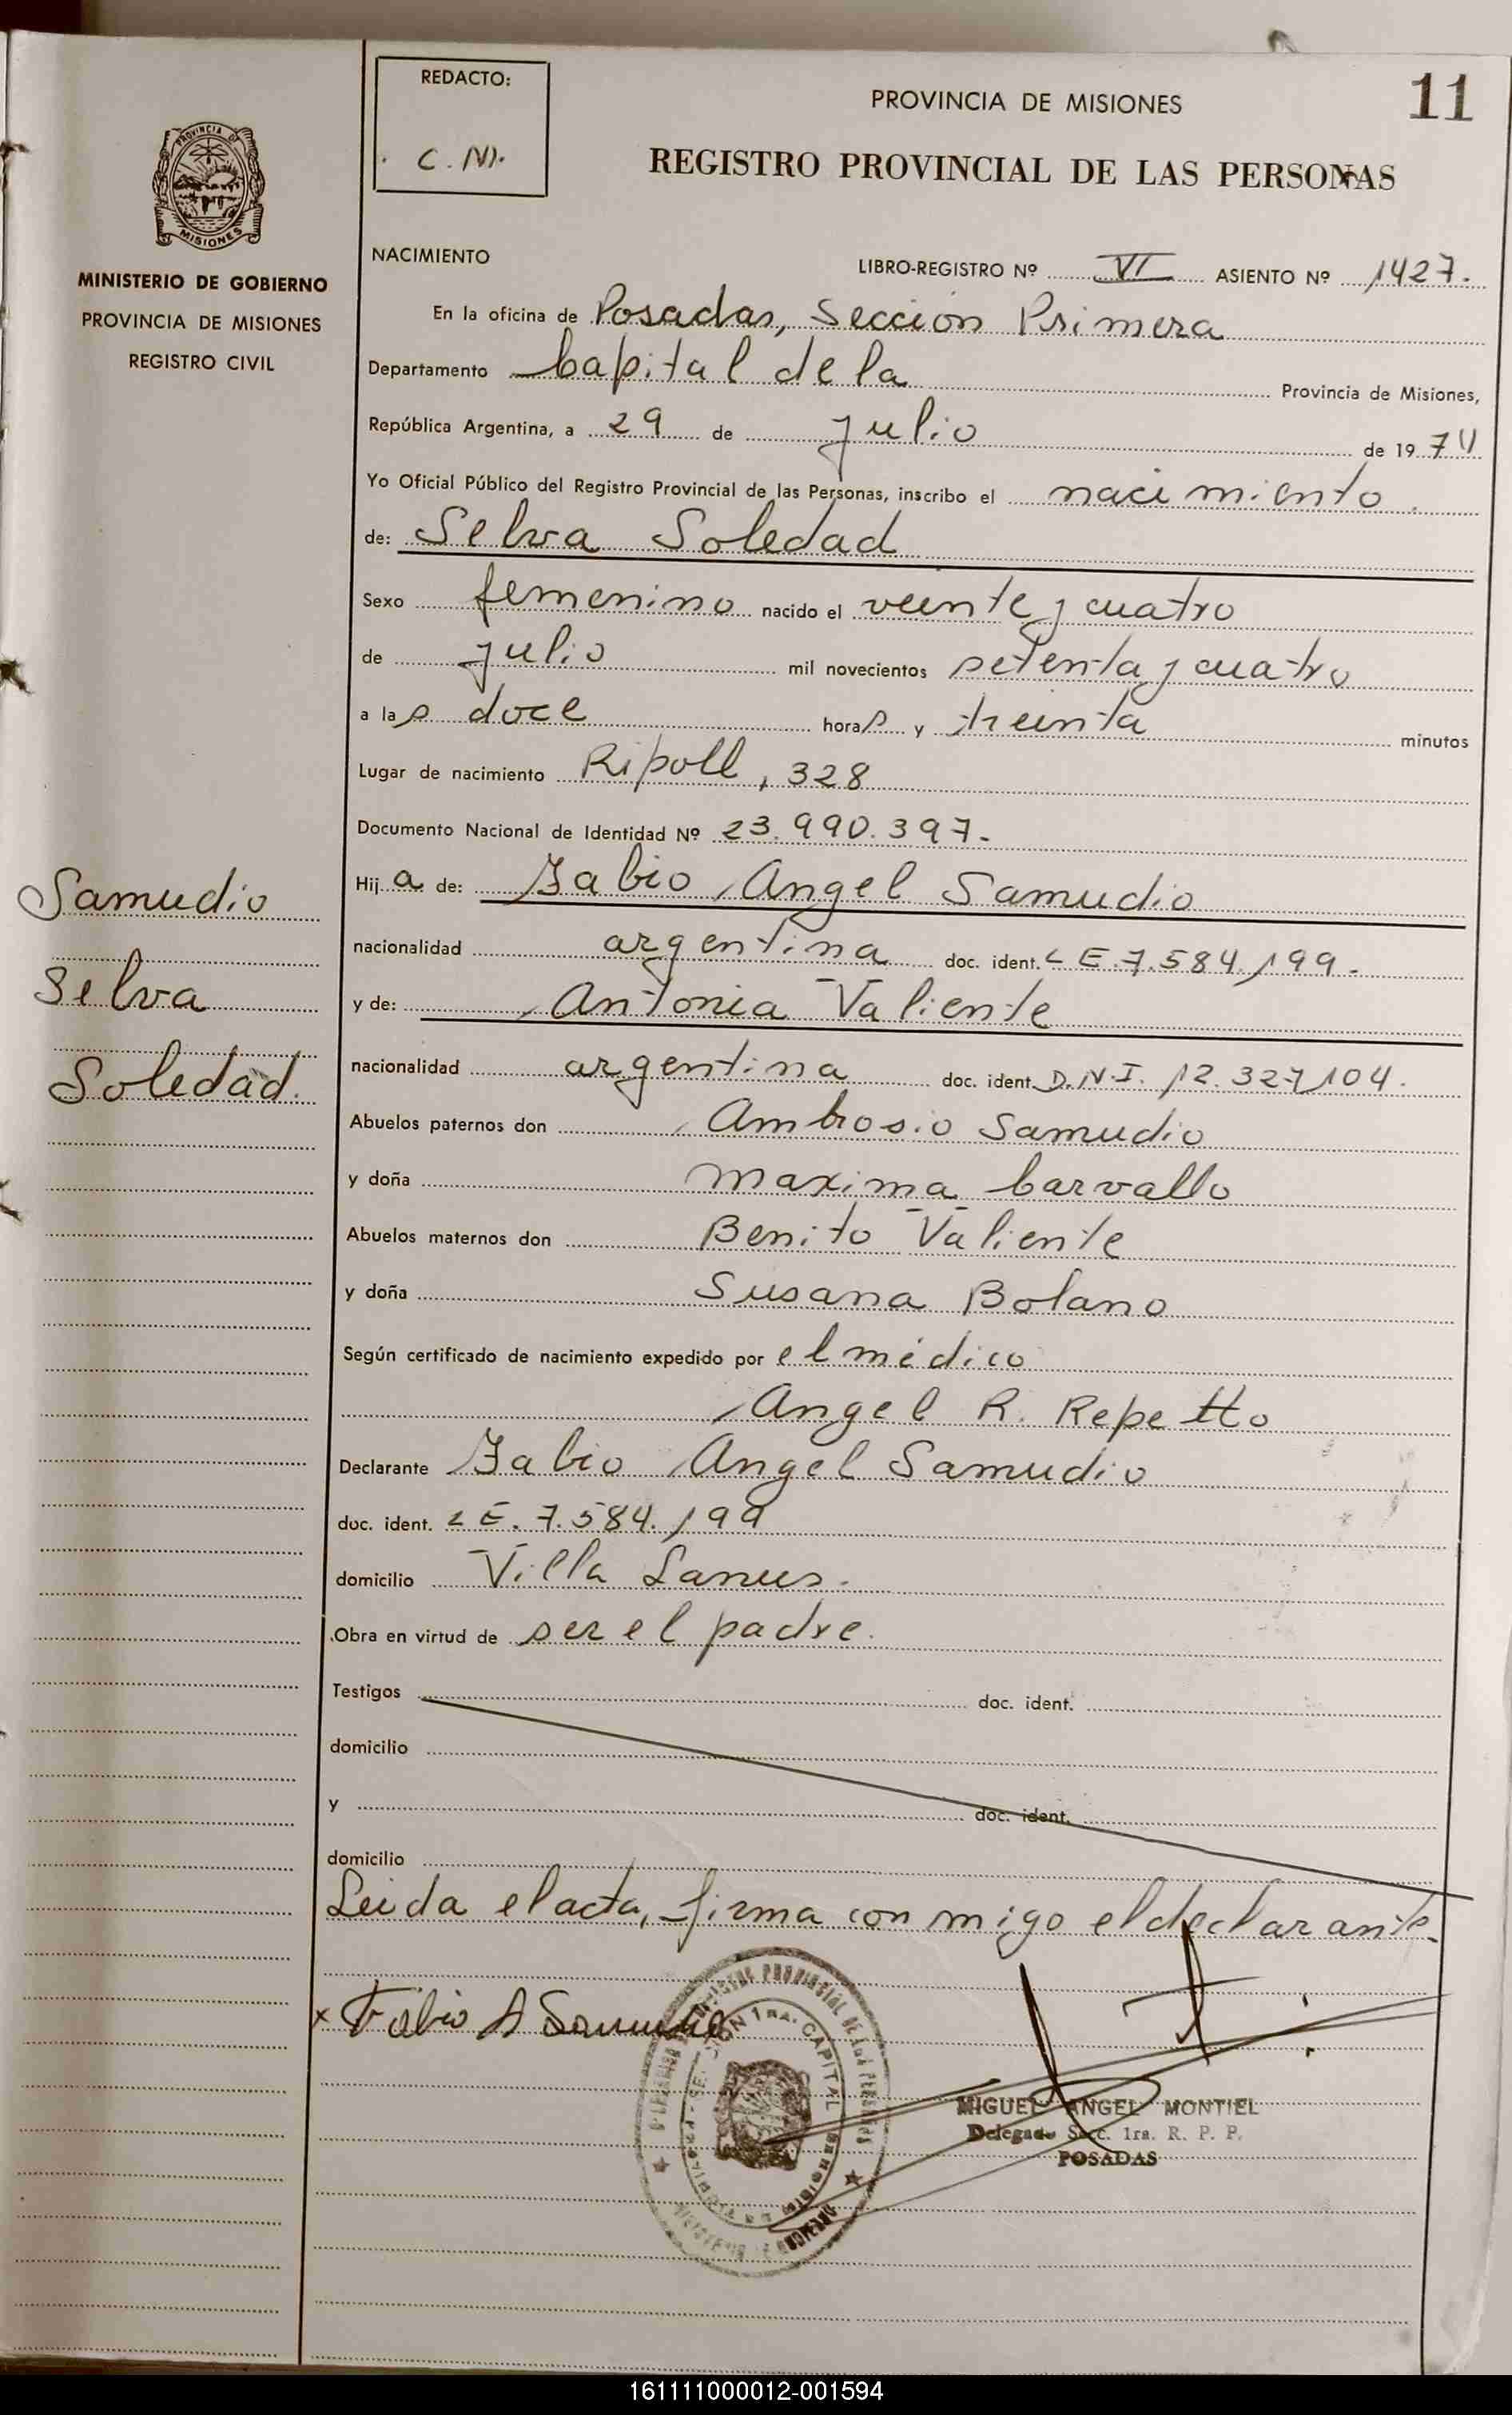 11
REDACTO:
C. N.
PROVINCIA DE MISIONES
REGISTRO PROVINCIAL DE LAS PERSONAS
PROVINCIA DE
MISIONES
MINISTERIO DE GOBIERNO
PROVINCIA DE MISIONES
REGISTRO CIVIL
NACIMIENTO
LIBRO-REGISTRO Nº VI ASIENTO Nº 1427.
En la oficina de Posadas, Sección Primera
Departamento Capital de la Provincia de Misiones,
República Argentina, a 29 de julio de 1974
Yo Oficial Público del Registro Provincial de las Personas, inscribo el nacimiento.
de: Selva Soledad
Sexo femenino nacido el veinte y cuatro
de julio mil novecientos setenta y cuatro
a las doce horas y treinta minutos
Lugar de nacimiento Ripoll, 328
Documento Nacional de Identidad Nº 23.990.397.-
Samudio
Selva
Soledad.
Hija de: Fabio Angel Samudio
nacionalidad argentina doc. ident. L E. 7.584.199.-
y de: Antonia Valiente
nacionalidad argentina doc. ident. D.N.I. 12.327.104.
Abuelos paternos don Ambrosio Samudio
y doña Maxima Carvallo
Abuelos maternos don Benito Valiente
y doña Susana Bolano
Según certificado de nacimiento expedido por el médico
Angel R. Repetto
Declarante Fabio Angel Samudio
doc. ident. L E. 7.584.199
domicilio Villa Lanus.
Obra en virtud de ser el padre.
Testigos doc. ident.
domicilio
y doc. ident.
domicilio
Leida el acta, firma con migo el declarante.
x Fabio A Samudio
MIGUEL ANGEL MONTIEL
Delegado Secc. 1ra. R. P. P.
POSADAS
161111000012-001594